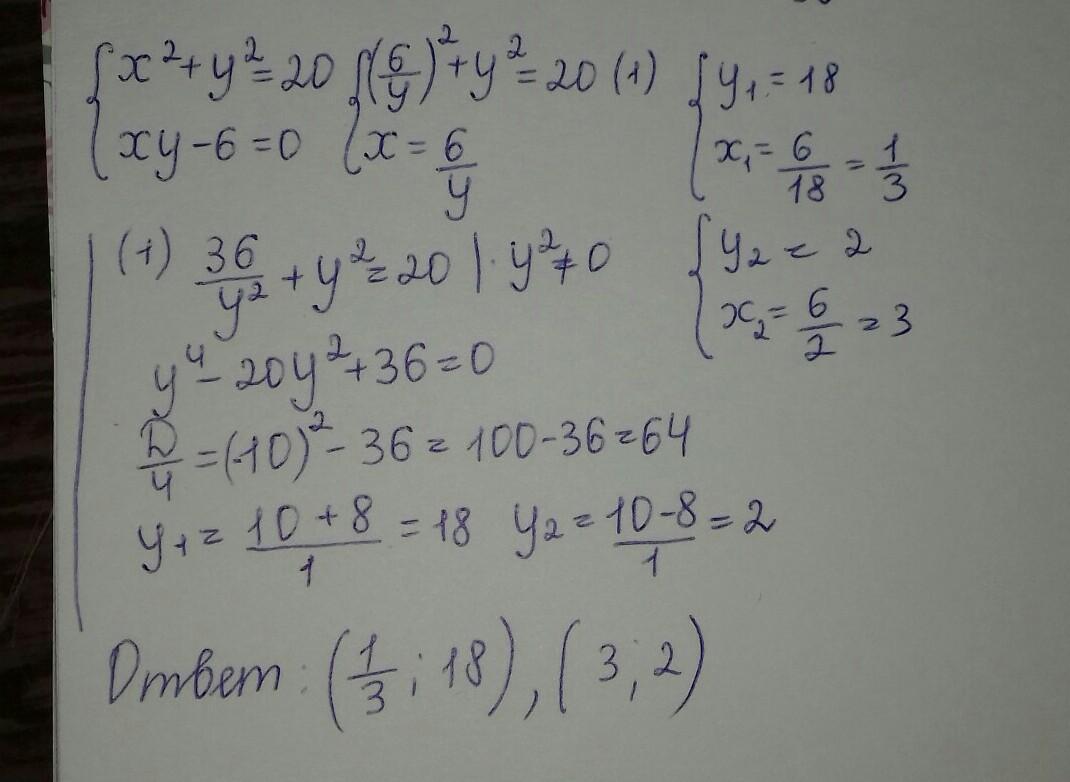 {x²+y²=20 {(6/y)²+y²=20 (1) {y₁=18
{xy-6=0 {x=6/y {x₁=6/18=1/3
(1) 36/y²+y²=20 |·y²≠0 {y₂=2
{x₂=6/2=3
y⁴-20y²+36=0
D/4=(-10)²-36=100-36=64
y₁=(10+8)/1=18 y₂=(10-8)/1=2
Ответ: (1/3; 18), (3; 2)